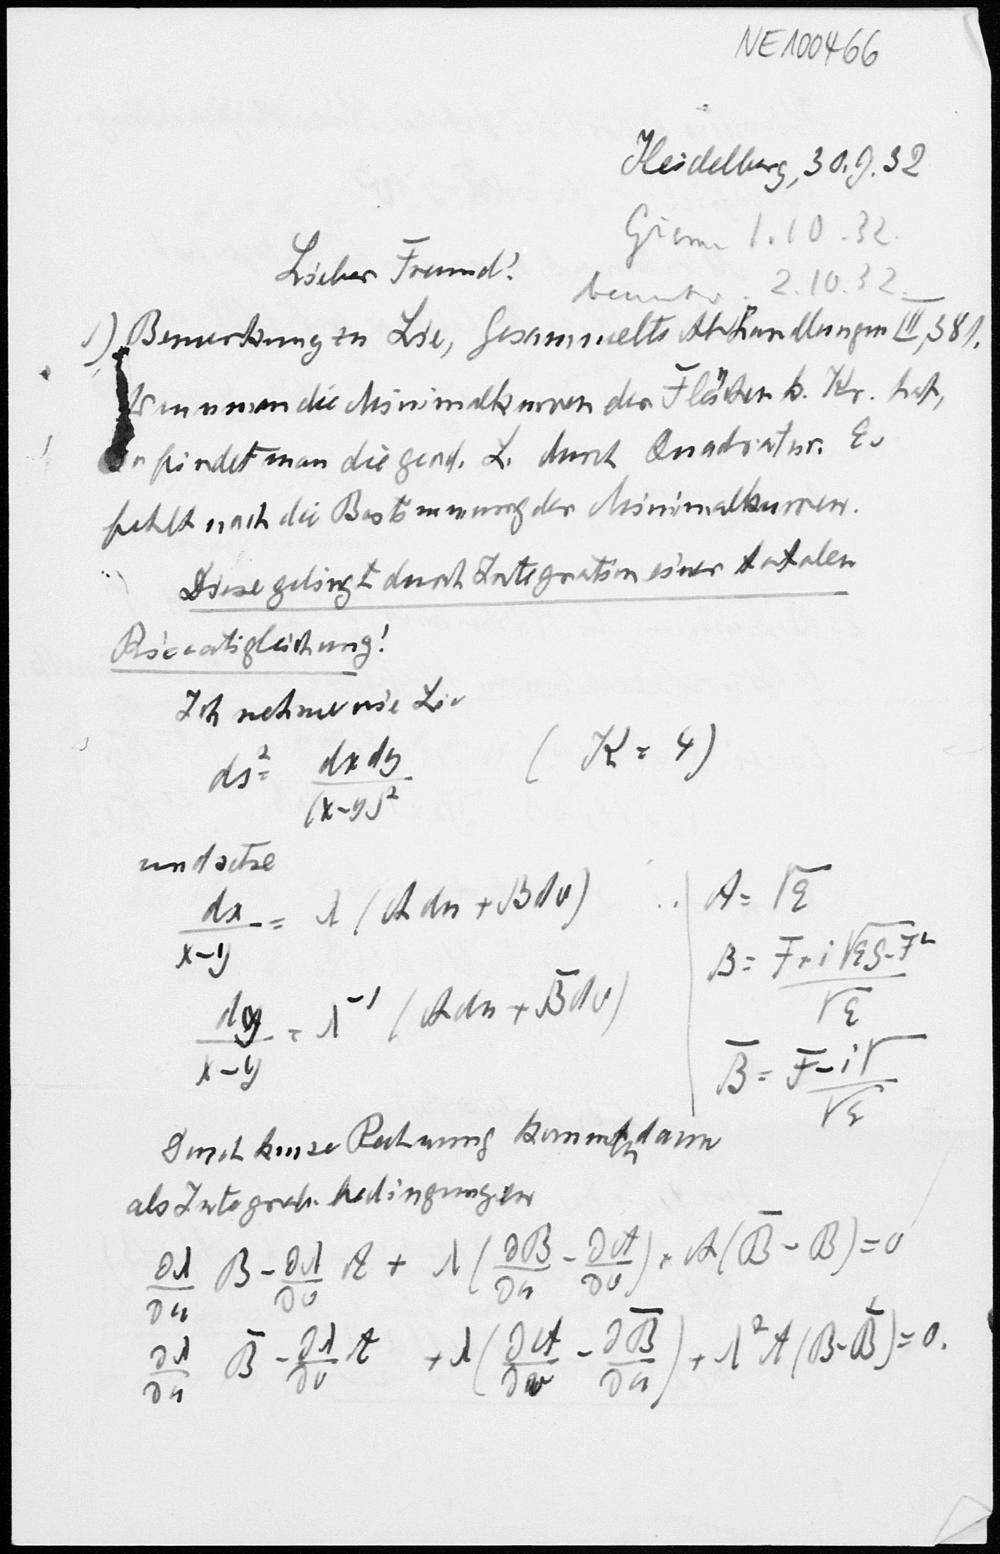 NE100466
Heidelberg, 30.9.32
1.10.32.
Lieber Freund!
2.10.32.
1) Bemerkung zu Lie, Gesammelte Abhandlungen III, 381.
Wenn man die Minimalkurven der Flächen k. Kr. hat,
so findet man die geod. L. durch Quadratur. Es
fehlt noch die Bestimmung der Minimalkurven.
Diese gelingt durch Integration einer totalen
Riccatigleichung!
Ich nehme wie Lie
ds² = dx dy / (x-y)² ( K = 4)
und setze
dx / (x-y) = λ (A du + B dv) A = √E
B = (F + i √(EG-F²)) / √E
dy / (x-y) = λ⁻¹ (A du + B̄ dv)
B̄ = (F - i √) / √E
Durch kurze Rechnung kommt dann
als Integrab. bedingungen
∂λ/∂u B - ∂λ/∂v A + λ (∂B/∂u - ∂A/∂v) + A (B̄ - B) = 0
∂λ/∂u B̄ - ∂λ/∂v A + λ (∂A/∂v - ∂B̄/∂u) + λ² A (B - B̄) = 0.